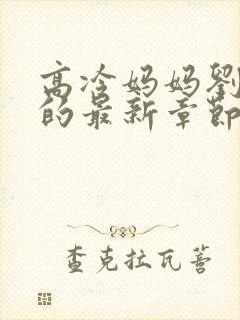 高冷妈妈劉
的最新章節
查克拉瓦蒼